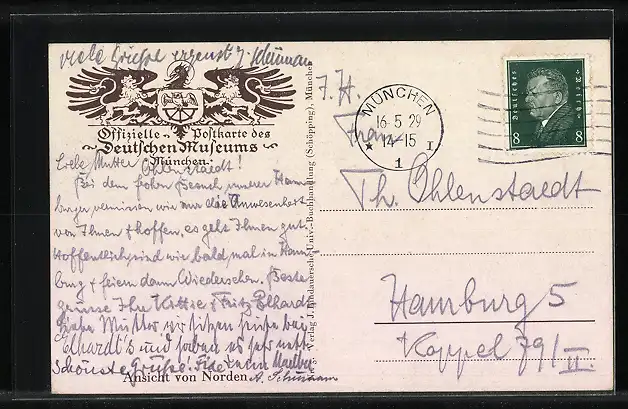 viele Grüße
Offizielle Postkarte des
Deutschen Museums
München.
Liebe Mutter Ohlenstaedt!
Bei dem frohen Besuch unserer Ham
burger vermissen wir nur die Anwesenheit
von Ihnen + hoffen, es geht Ihnen gut.
Hoffentlich sind wir bald mal in Ham-
burg + feiern dann Wiedersehen. Beste
Grüsse Ihr Kittie + Fritz Elhardt
Liebe Mutter wir sitzen hier bei
Elhardt's und haben es sehr nett
Schönste Grüße!
Ansicht von Norden
Verlag J. Lindauersche Univ.-Buchhandlung (Schöpping), München
MÜNCHEN
16 5 29
14-15
1 I
Deutsches Reich
8 8
Frau
Th. Ohlenstaedt
Hamburg 5
Koppel 79/II.